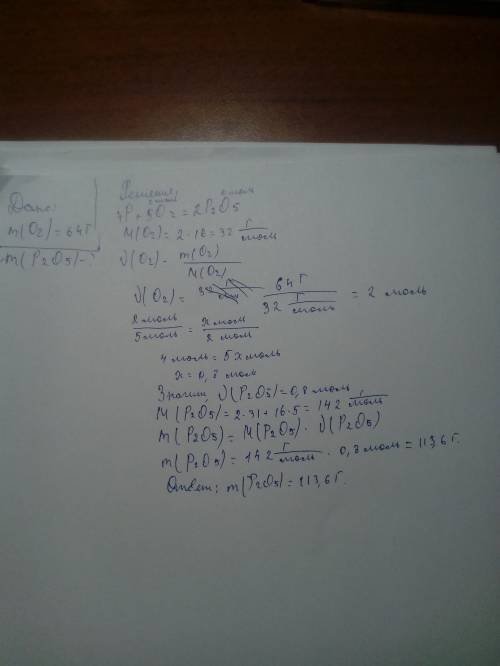 Дано:
m(O2)=64г
m(P2O5)-
Решение:
2 моль x моль
4P+5O2=2P2O5
M(O2)=2·16=32 г/моль
ν(O2)= m(O2)/M(O2)
ν(O2)= 64г / 32 г/моль = 2 моль
2 моль/5 моль = x моль/2 моль
4 моль=5x моль
x=0,8 моль
Значит ν(P2O5)=0,8 моль,
M(P2O5)=2·31+16·5=142 г/моль
m(P2O5)=M(P2O5)·ν(P2O5)
m(P2O5)=142 г/моль · 0,8 моль=113,6г.
Ответ: m(P2O5)=113,6г.